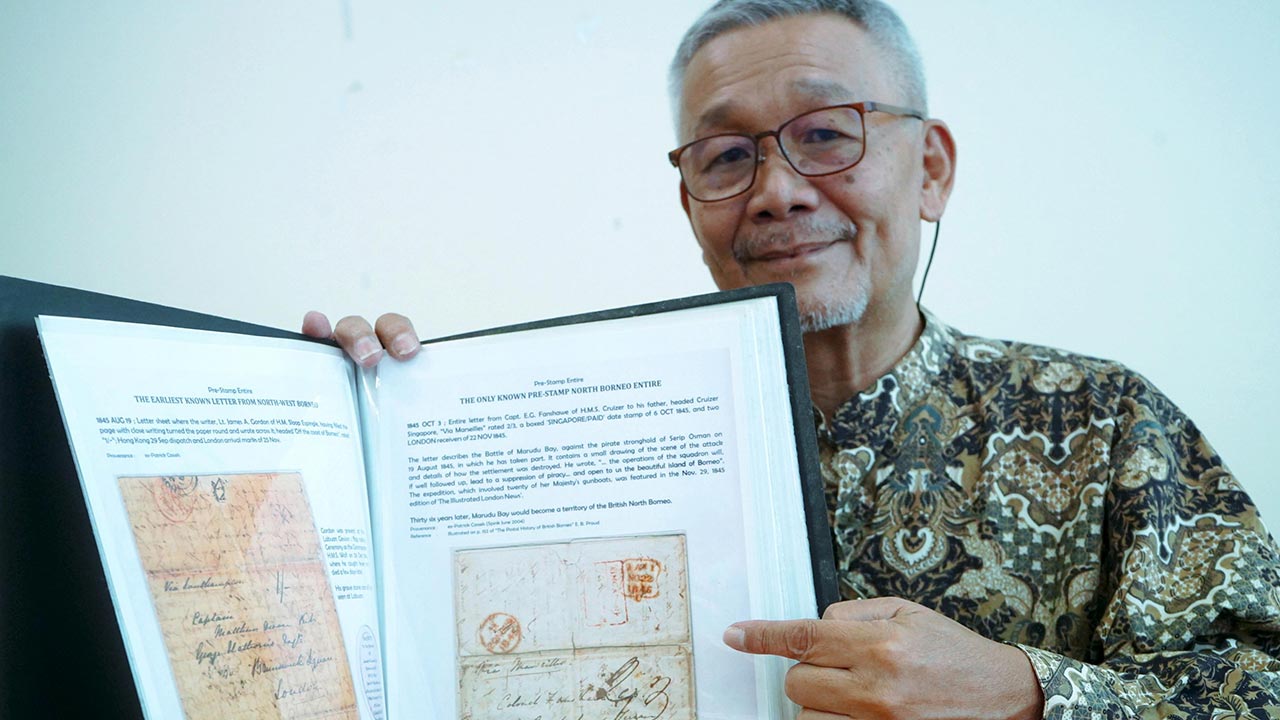 Pre-Stamp Entire
THE EARLIEST KNOWN LETTER FROM NORTH-WEST BORNEO
1845 AUG 19 : Letter sheet where the writer, Lt. James A. Gordon of H.M. Sloop Espiegle, having filled the
page with close writing turned the paper round and wrote across it, headed 'Off the coast of Borneo', rated
"1/-"; Hong Kong 29 Sep dispatch and London arrival marks of 25 Nov.
Provenance : ex-Patrick Cassels.
Gordon was present at the
Labuan
Ceremony
H.M.S. Wolf
where he caught
died a few days
His grave
seen at Labuan.
Via Southampton 1/-
Captain
Matthew
George
Brunswick Square
London
Pre-Stamp Entire
THE ONLY KNOWN PRE-STAMP NORTH BORNEO ENTIRE
1845 OCT 3 : Entire letter from Capt. E.G. Fanshawe of H.M.S. Cruizer to his father, headed Cruizer
Singapore, "Via Marseilles" rated 2/3, a boxed 'SINGAPORE/PAID' date stamp of 6 OCT 1845, and two
LONDON receivers of 22 NOV 1845.
The letter describes the Battle of Marudu Bay, against the pirate stronghold of Serip Osman on
19 August 1845, in which he has taken part. It contains a small drawing of the scene of the attack
and details of how the settlement was destroyed. He wrote, "... the operations of the squadron will,
if well followed up, lead to a suppression of piracy... and open to us the beautiful island of Borneo".
The expedition, which involved twenty of her Majesty's gunboats, was featured in the Nov. 29, 1845
edition of 'The Illustrated London News'.
Thirty six years later, Marudu Bay would become a territory of the British North Borneo.
Provenance : ex-Patrick Cassels (Spink June 2004)
Reference : Illustrated on p. 163 of "The Postal History of British Borneo" E. B. Proud
Via Marseilles
Colonel